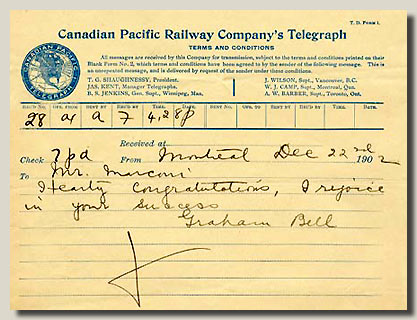 T. D. Form 1.
Canadian Pacific Railway Company's Telegraph
TERMS AND CONDITIONS
All messages are received by this Company for transmission, subject to the terms and conditions printed on their
Blank Form No. 2, which terms and conditions have been agreed to by the sender of the following message. This is
an unrepeated message, and is delivered by request of the sender under these conditions.
T. G. SHAUGHNESSY, President.
JAS. KENT, Manager Telegraphs.
B. S. JENKINS, Gen. Supt., Winnipeg, Man.
J. WILSON, Supt., Vancouver, B.C.
W. J. CAMP, Supt., Montreal, Que.
A. W. BARBER, Supt., Toronto, Ont.
CANADIAN PACIFIC
TELEGRAPH
SENT BY REC'D BY TIME DATE SENT NO. TO SENT BY REC'D BY TIME DATE
28 a 7 4.28P
Received at
Check 7 pd From Montreal Dec 22nd 1902
To Mr. Marconi
Hearty Congratulations, I rejoice
in your success
Graham Bell